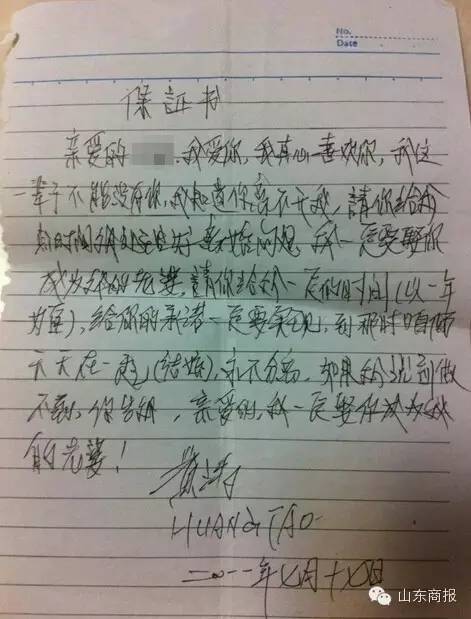 No.
Date
保証书
亲爱的 .我爱你,我真心喜欢你,我这
一辈子不能没有你,我知道你离不开我,請你给我
点时间 处 好 婚姻问题,我一定要娶你
成为我的老婆,請你给我一定的时间(以一年
为宜),给你的承诺一定要实现,到那时咱俩
天天在一起(结婚),永不分离,如果我说到做
不到,你告我,亲爱的,我一定娶你成为我
的老婆!
黄涛
HUANG TAO
二〇一一年七月十七日
山东商报